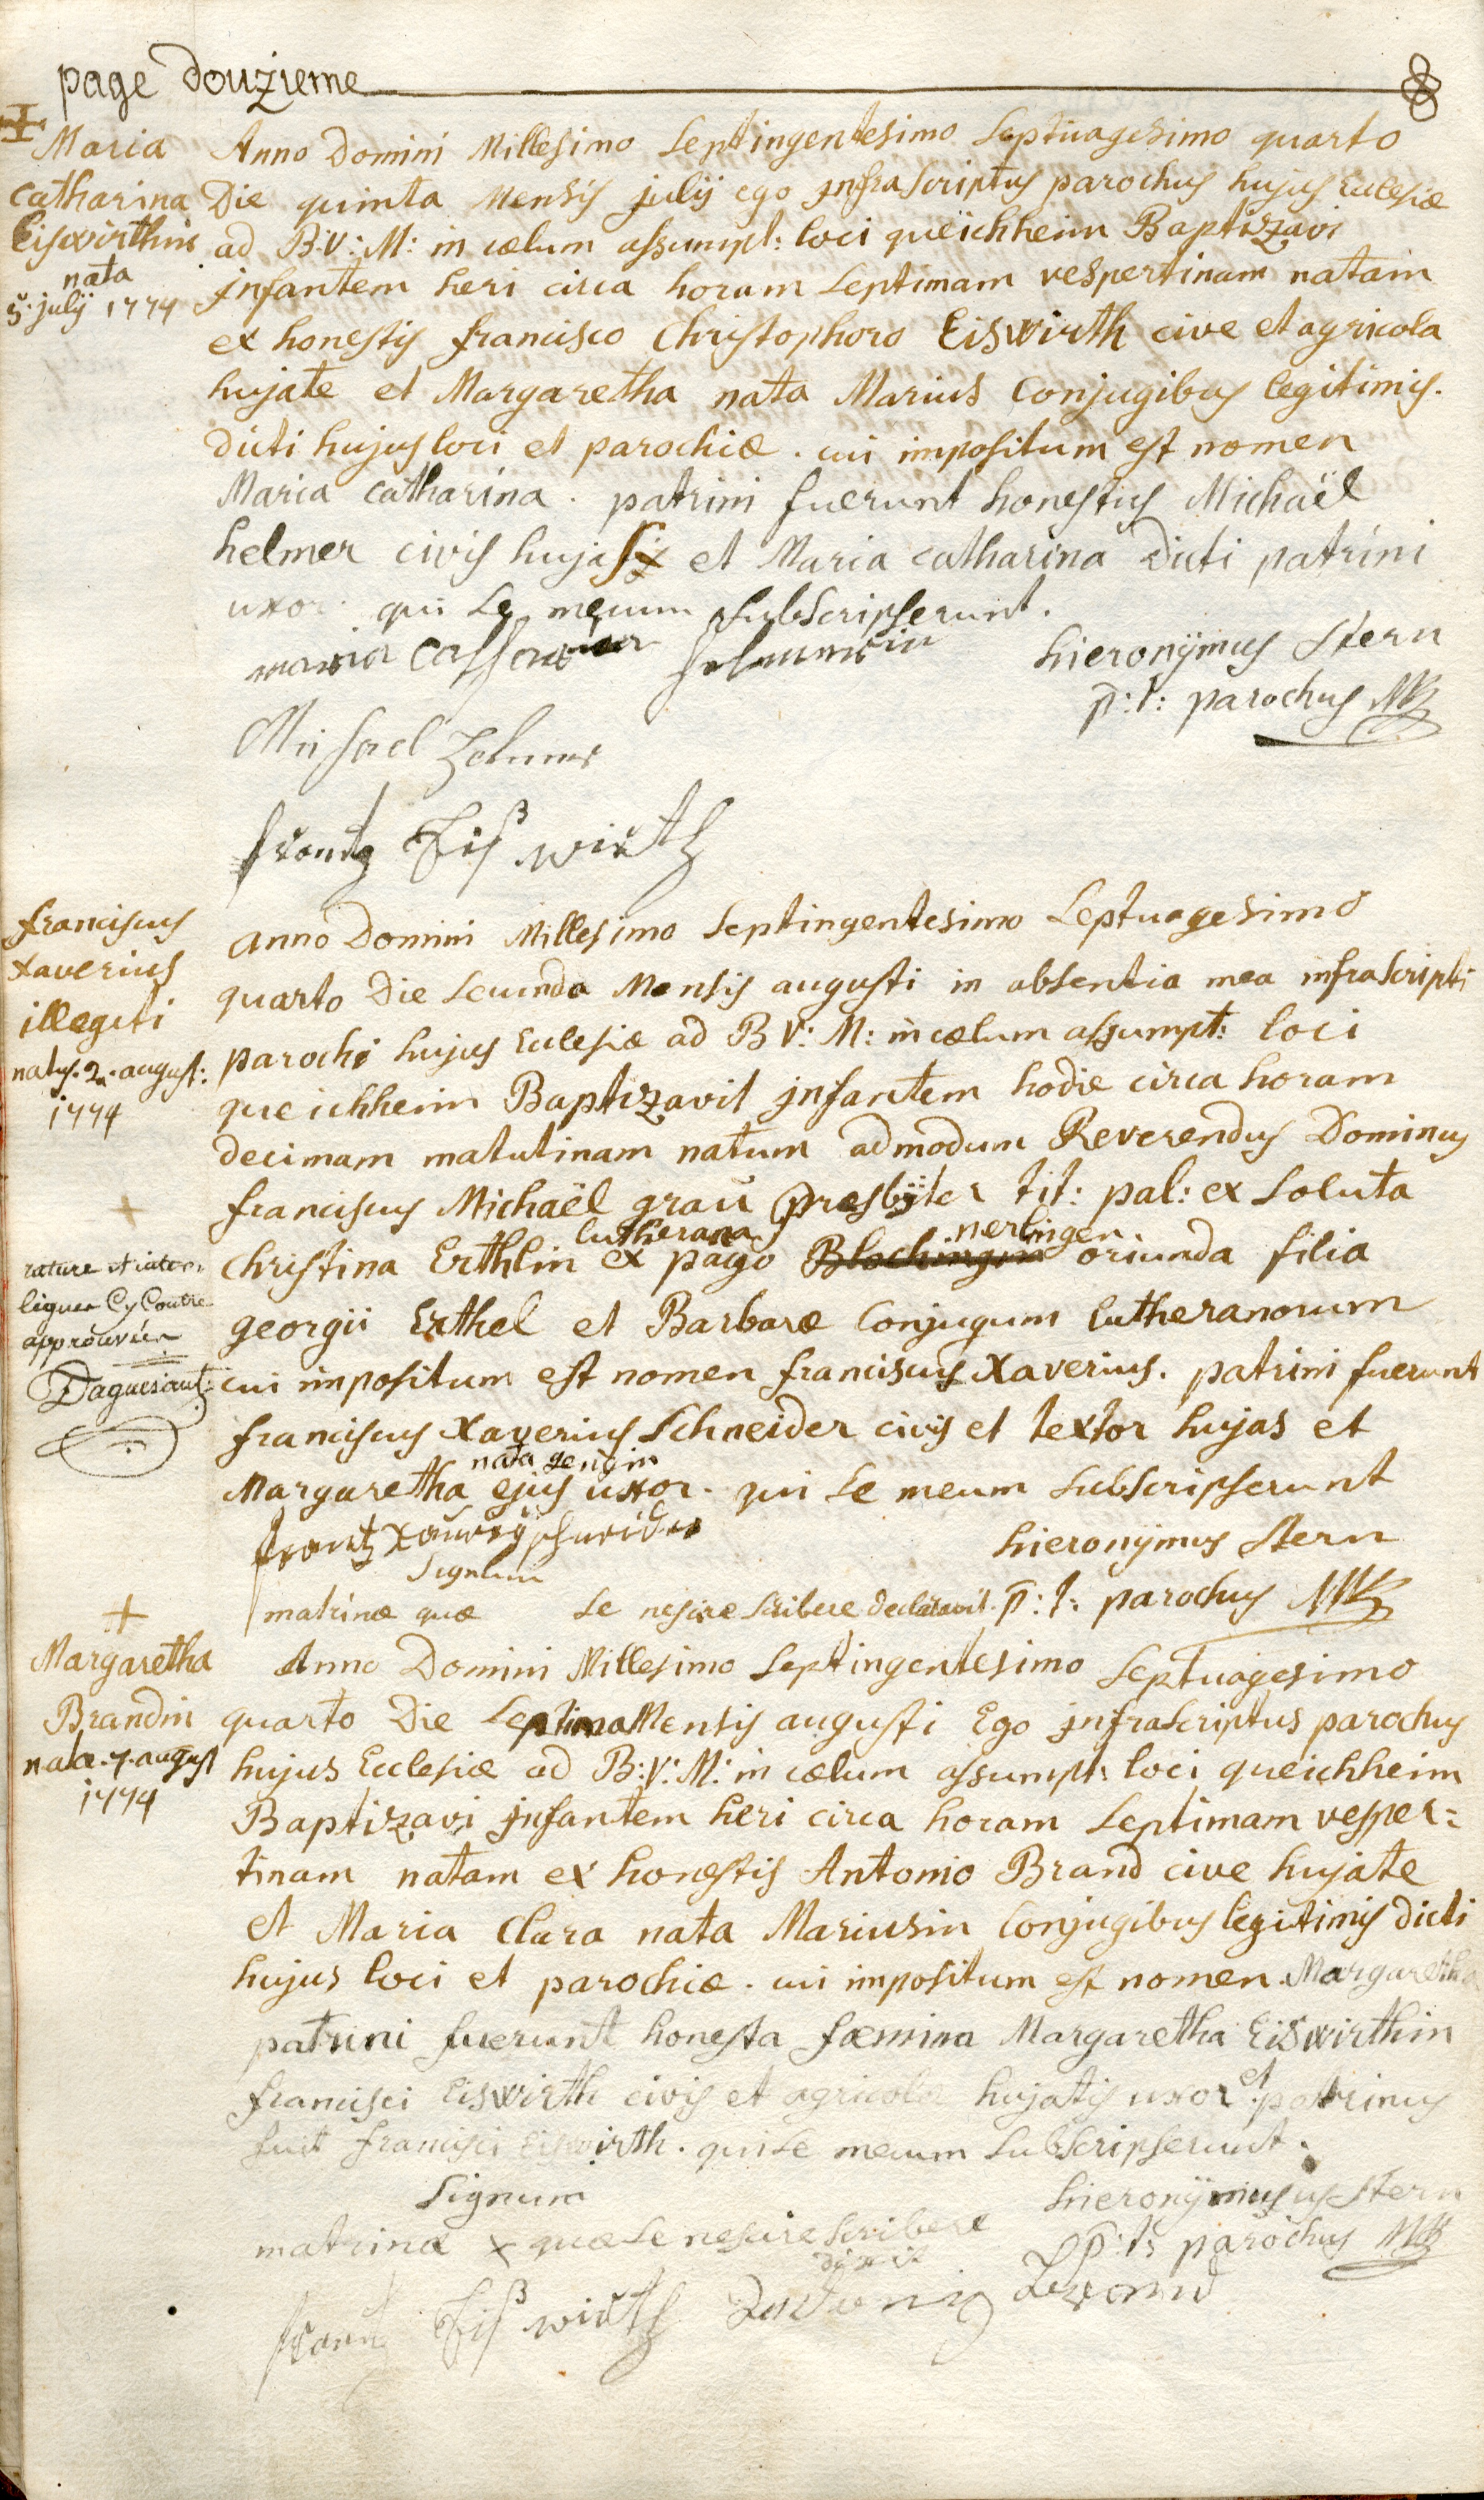 page douzieme
Maria
Catharina
Eiswirthin
nata
5. julÿ 1774
Anno Domini Millesimo Septingentesimo Septuagesimo quarto
Die quinta Mensis julÿ ego jnfrascriptus parochus hujus Eclesiæ
ad B:V:M: in cælum assumpt: loci queichheim Baptizavi
jnfantem heri circa horam septimam vespertinam natam
ex honestis francisco Christophoro Eiswirth cive et agricola
hujate et Margaretha nata Marius Conjugibus legitimis.
dicti hujus loci et parochiæ. cui impositum est nomen
Maria Catharina. patrini fuerunt honestus Michaël
helmer civis hujas et Maria Catharina dicti patrini
uxor. qui se mecum subscripserunt.
maria
hieronÿmus Stern
p:t: parochus
frantz Eißwirth
franciscus
xaverius
illegiti
natus. 2a. august:
1774
anno Domini Millesimo Septingentesimo Septuagesimo
quarto Die secunda Mensis augusti in absentia mea infrascripti
parochi hujus Eclesiæ ad B V: M: in cælum assumpt: loci
queichheim Baptizavit jnfantem hodie circa horam
decimam matutinam natum admodum Reverendus Dominus
franciscus Michaël grau præsbÿter tit: pal: ex soluta
lutherana nerlingen
christina Erthlin ex pago oriunda filia
georgii Erthel et Barbaræ Conjugum lutheranorum
cui impositum est nomen franciscus Xaverius. patrini fuerunt
franciscus Xaverius Schneider civis et textor hujas et
nata
Margaretha ejus uxor. qui se mecum subscripserunt
rature et inter
lignes Cy Contre
approuvées
Daguesaut
frantz Schneider
hieronÿmus Stern
signum
matrinæ quæ se nescire scribere declaravit. p:t: parochus
Margaretha
Brandin
nata. 7. august
1774
Anno Domini Millesimo Septingentesimo Septuagesimo
quarto Die Septima Mensis augusti Ego jnfrascriptus parochus
hujus Ecclesiæ ad B:V:M: in cælum assumpt: loci queichheim
Baptizavi jnfantem heri circa horam septimam vesper=
tinam natam ex honestis Antonio Brand cive hujate
et Maria Clara nata Mariusin Conjugibus legitimis dicti
hujus loci et parochiæ. cui impositum est nomen. Margaretha
patrini fuerunt honesta fæmina Margaretha Eiswirthin
et
francisci Eiswirth civis et agricolæ hujatis uxor patrinus
fuit francisci Eiswirth. qui se mecum subscripserunt.
signum
hieronÿmus Stern
matrinæ x quæ se nescire scribere
dixit
p:t: parochus
Eißwirth Brand